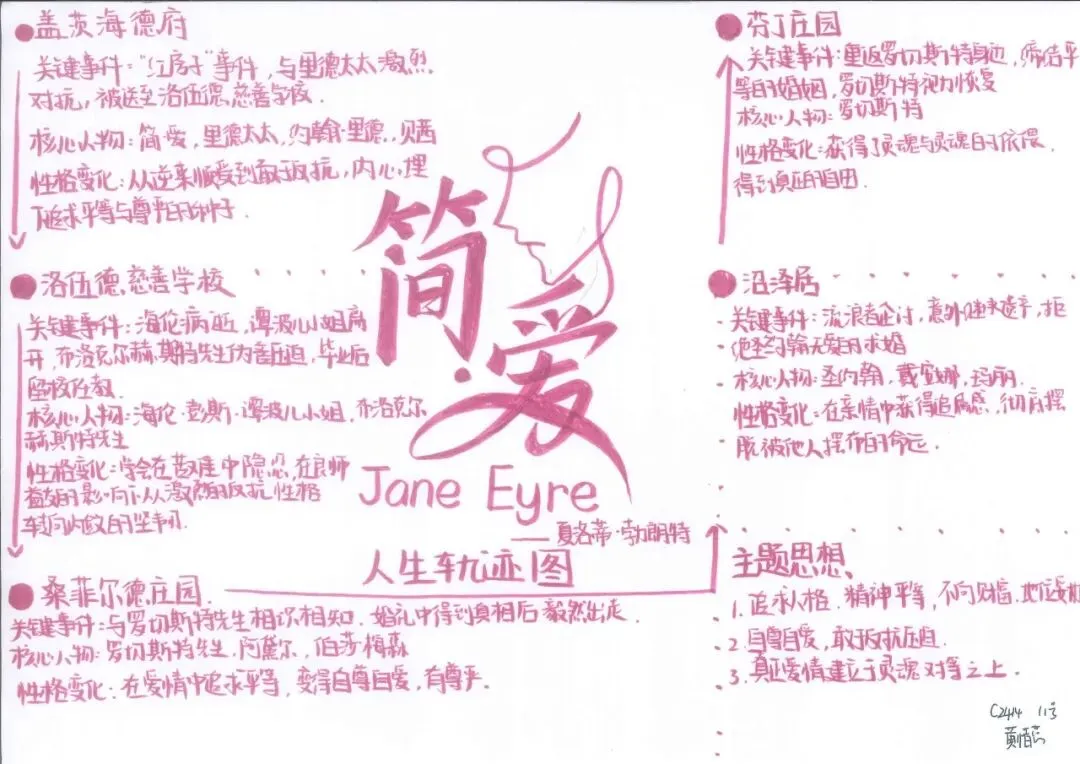 盖茨海德府
关键事件："红房子"事件，与里德太太激烈
对抗，被送至洛伍德慈善学校.
核心人物：简·爱，里德太太，约翰·里德，贝茜
性格变化：从逆来顺受到敢于反抗，内心埋
下追求平等与尊严的种子.
洛伍德慈善学校
关键事件：海伦病逝，谭波儿小姐离
开，布洛克尔赫斯特先生伪善压迫，毕业后
留校任教.
核心人物：海伦·彭斯·谭波儿小姐，布洛克尔
赫斯特先生
性格变化：学会在苦难中隐忍，在良师
益友的影响下从激烈的反抗性格
转向内敛的坚韧.
桑菲尔德庄园
关键事件：与罗切斯特先生相识相知，婚礼中得到真相后毅然出走.
核心人物：罗切斯特先生，阿黛尔，伯莎·梅森
性格变化：在爱情中追求平等，变得自尊自爱，有尊严.
简·爱
Jane Eyre
——夏洛蒂·勃朗特
人生轨迹图
芬丁庄园
关键事件：重返罗切斯特身边，缔结平
等的婚姻，罗切斯特视力恢复
核心人物：罗切斯特
性格变化：获得了灵魂与灵魂的依偎.
得到真正的自由.
沼泽居
关键事件：流浪者企讨，意外继承遗产，拒
绝圣约翰无爱的求婚
核心人物：圣约翰，戴安娜，玛丽.
性格变化：在亲情中获得归属感，彻底摆
脱被他人摆布的命运.
主题思想
1. 追求人格、精神平等，不向财富、地位妥协
2. 自尊自爱，敢于反抗压迫.
3. 真正爱情建立于灵魂对等之上.
C2414 11号